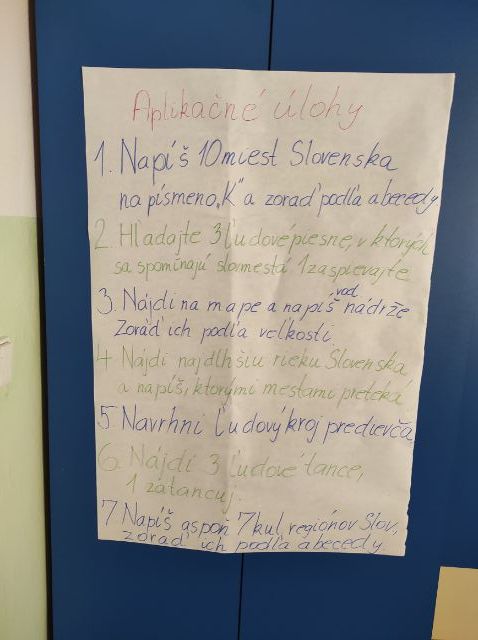 Aplikačné úlohy
1. Napíš 10 miest Slovenska
na písmeno „K" a zoraď podľa abecedy
2. Hľadajte 3 ľudové piesne, v ktorých
sa spomínajú slov. mestá 1 zaspievajte
3. Nájdi na mape a napíš vod. nádrže
Zoraď ich podľa veľkosti
4. Nájdi najdlhšiu rieku Slovenska
a napíš, ktorými mestami preteká
5. Navrhni ľudový kroj pre dievča
6. Nájdi 3 ľudové tance,
1 zatancuj.
7. Napíš aspoň 7 kul. regiónov Slov.,
zoraď ich podľa abecedy.